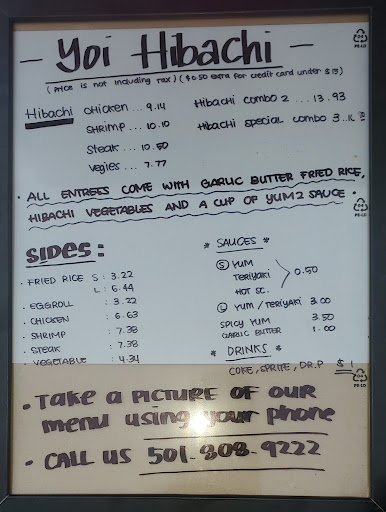 - Yoi Hibachi -
(Price is not including tax) ($0.50 extra for credit card under $10)
Hibachi chicken ... 9.14
shrimp ... 10.10
steak ... 10.50
vegies ... 7.77
Hibachi combo 2 ... 13.93
Hibachi special combo 3 ..
• ALL ENTREES COME WITH GARLIC BUTTER FRIED RICE,
HIBACHI VEGETABLES AND A CUP OF YUM2 SAUCE.
SIDES :
• FRIED RICE S : 3.22
L : 6.44
• EGGROLL : 3.22
• CHICKEN : 6.63
• SHRIMP : 7.38
• STEAK : 7.38
• VEGETABLE : 4.34
* SAUCES *
(S) YUM
TERIYAKI
HOT SC.
0.50
(L) YUM / TERIYAKI 3.00
SPICY YUM 3.50
GARLIC BUTTER 1.00
* DRINKS *
COKE, SPRITE, DR.P $1
• Take a PICTURE OF OUR
menu using your phone
• CALL US 501-808-9222
PE-LD
PE-LD
PE-LD